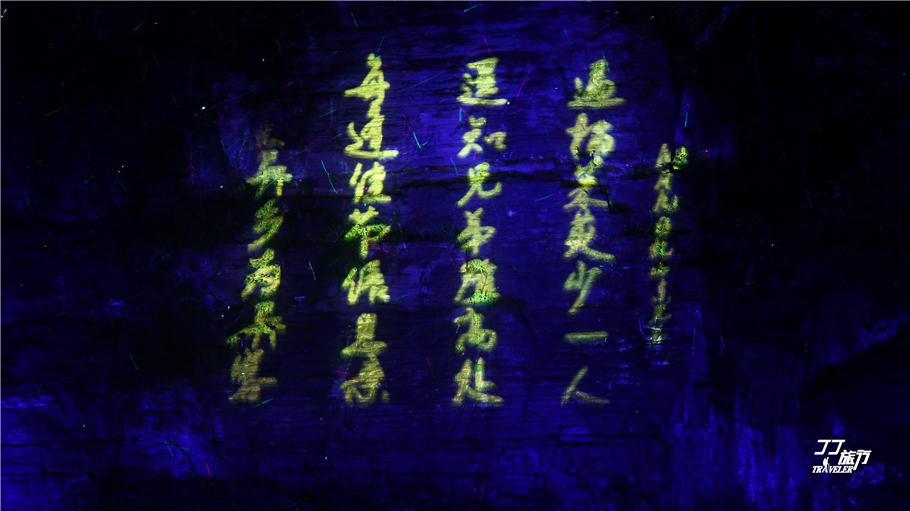 异乡为异客
每逢佳节倍思亲
遥知兄弟登高处
遍插茱萸少一人
旅行
TRAVELER